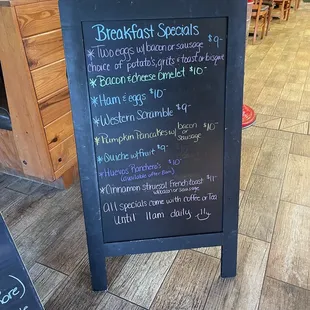 Breakfast Specials
* Two eggs w/ bacon or sausage $9-
choice of potato's, grits + toast or biscuit
* Bacon & cheese Omelet $10-
* Ham & eggs $10-
* Western Scramble $9-
* Pumpkin Pancakes w/ bacon or sausage $10-
* Quiche w/ fruit $9-
* Huevos Ranchero's $10-
(available after 11am)
* Cinnamon struesal French toast $11-
w/ bacon or sausage
All specials come with coffee or Tea
Until 11am daily